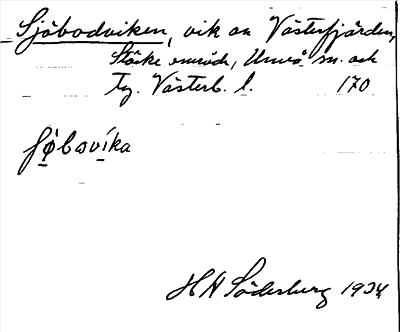 Sjöbodviken, vik av Västerfjärden,
Stöcke enmråde, Umeå sn. och
tg. Västerb. l. 170
ʃø̀bɷvìka
H A Söderberg 1934